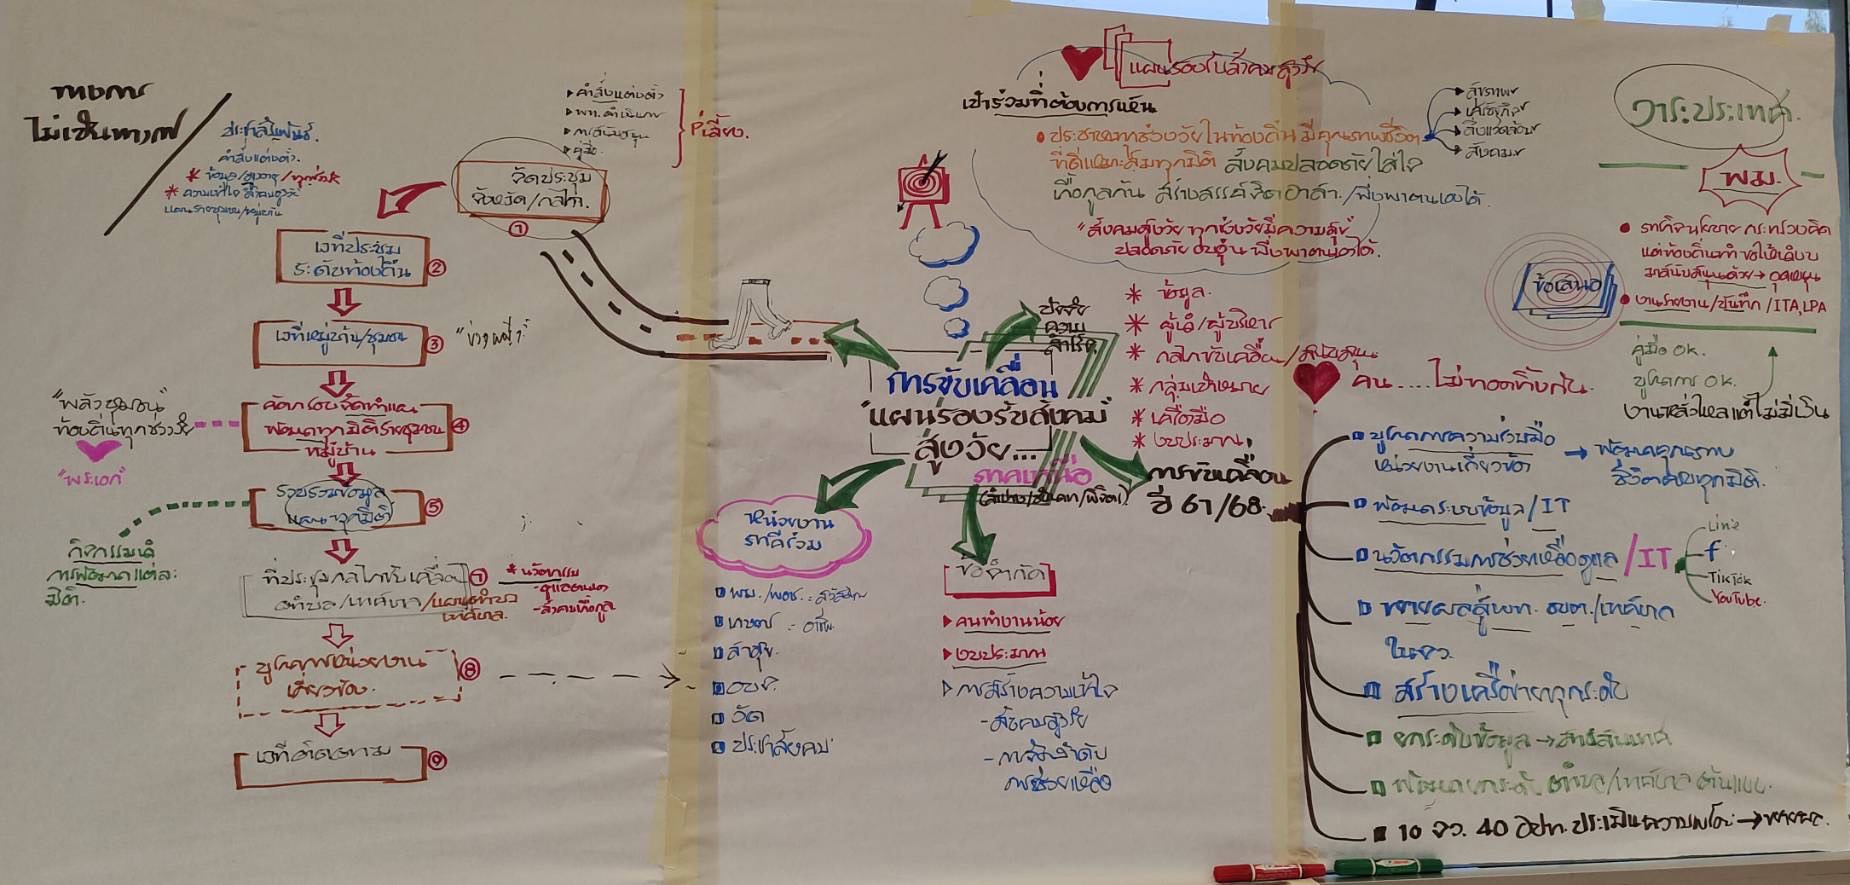 ทางการ
ไม่เป็นทางการ
ประชาสัมพันธ์.
คำสั่งแต่งตั้ง.
▸ คำสั่งแต่งตั้ง
▸ คู่มือ.
พี่เลี้ยง.
จัดประชุม
จังหวัด/กลไก.
①
เวทีประชุม
ระดับท้องถิ่น
②
เวทีหมู่บ้าน/ชุมชน
③
คัดกรองจัดทำแผน
พัฒนาทุกมิติรายชุมชน
④
หมู่บ้าน
"พลังชุมชน"
ท้องถิ่นทุกช่วงวัย
"พระเอก"
รวบรวมข้อมูล
แผนทุกมิติ
⑤
กิจกรรม
การพัฒนาแต่ละ
มิติ.
ที่ประชุมกลไกขับเคลื่อน
ตำบล/เทศบาล/แผนตำบล
เทศบาล.
* นวัตกรรม
บูรณาการหน่วยงาน
เกี่ยวข้อง.
⑧
เวทีติดตาม
⑨
แผนรองรับสังคมสูงวัย
เป้าร่วมที่ต้องการเห็น
• ประชาชนทุกช่วงวัยในท้องถิ่น มีคุณภาพชีวิต
ที่ดีเหมาะสมทุกมิติ สังคมปลอดภัย ใส่ใจ
เกื้อกูลกัน สร้างสรรค์ จิตอาสา/พึ่งพาตนเองได้.
"สังคมสูงวัย ทุกช่วงวัยมีความสุข
ปลอดภัย อบอุ่น พึ่งพาตนเองได้.
สุขภาพ
เศรษฐกิจ
สิ่งแวดล้อม
สังคม
ปัจจัย
ความ
สำเร็จ
* ข้อมูล.
* ผู้นำ/ผู้บริหาร
* กลไกขับเคลื่อน/สนับสนุน
* กลุ่มเป้าหมาย
* เครื่องมือ
* งบประมาณ
การขับเคลื่อน
"แผนรองรับสังคม"
สูงวัย...
ภาคเหนือ
หน่วยงาน
ภาคีร่วม
พม./พอช.
เกษตร : อาชีพ
สาสุข
อบจ.
วัด
ประชาสังคม
ข้อจำกัด
▸ คนทำงานน้อย
▸ งบประมาณ
▸ การสร้างความเข้าใจ
- สังคมสูงวัย
- การจัดลำดับ
การช่วยเหลือ
การขับเคลื่อน
ปี 67/68.
วาระประเทศ.
พม.
• ภารกิจนโยบาย กระทรวงคิด
• งานรายงาน/บันทึก /ITA, LPA
ข้อเสนอ
คู่มือ OK.
บูรณาการ OK.
งานหลั่งไหลแต่ไม่มีเงิน
คน....ไม่ทอดทิ้งกัน.
บูรณาการความร่วมมือ
หน่วยงานเกี่ยวข้อง
→ พัฒนาคุณภาพ
ชีวิตครบทุกมิติ.
พัฒนาระบบข้อมูล/IT
นวัตกรรมการช่วยเหลือดูแล /IT
Line
f
TikTok
YouTube.
ขยายผลสู่ พท. อบต./เทศบาล
ใน จว.
สร้างเครือข่ายทุกระดับ
ยกระดับข้อมูล → สารสนเทศ
พัฒนายกระดับ ตำบล/เทศบาล ต้นแบบ
10 จว. 40 อปท. ประเมินความพร้อม → ขยายผล.